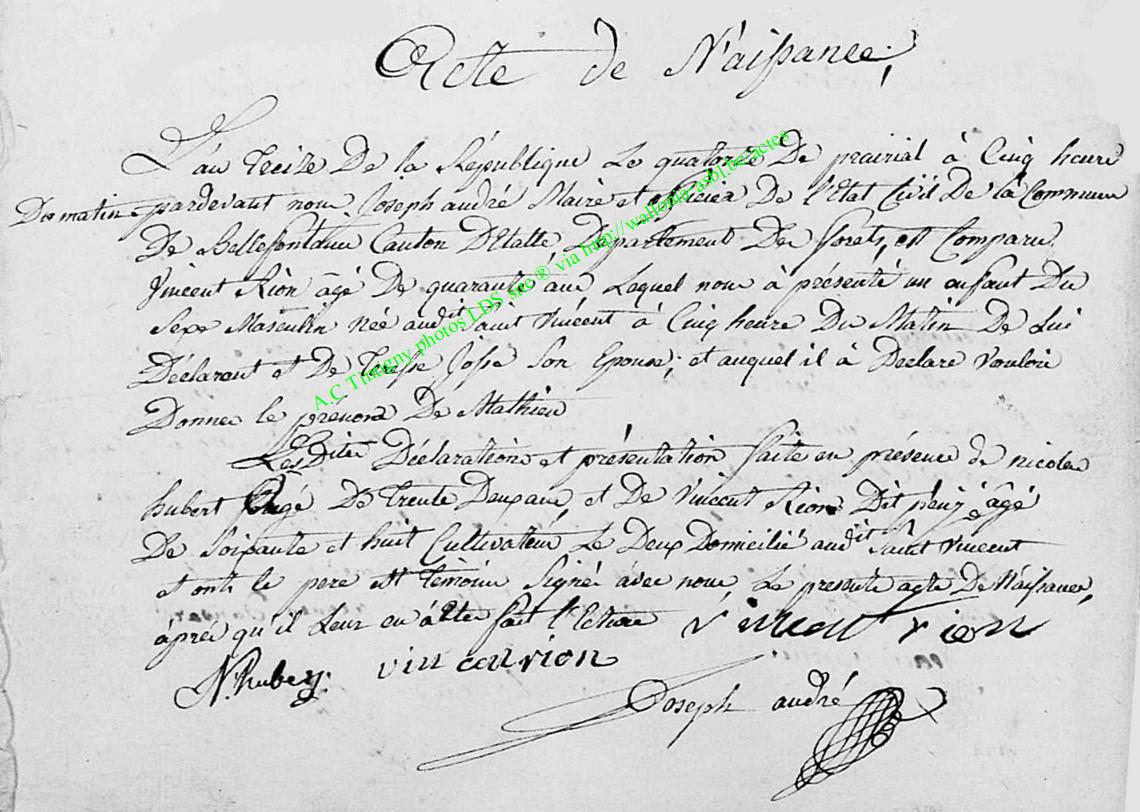 Acte de Naissance,
L'an treize De la République Le quatorze De prairial à Cinq heure
Du matin pardevant nous Joseph andré Maire et officier De l'Etat Civil De la Commune
De Bellefontaine Canton D'Etalle, Département Des forets, est Comparu
Vincent Rion âgé De quarante ans Lequel nous à présenté un enfant Du
Sexe Masculin née audit Saint Vincent à Cinq heure Du Matin De Lui
Déclarant et De Therese Josse Son Epouse; et auquel il à Declaré Vouloir
Donner le prénom De Mathieu
Les Dites Déclaration et présentation faite en présence de nicolas
hubert âgé De trente Deux ans, et De Vincent Rion Dit âgé
De Soixante et huit Cultivateur Le Deux Domicilié audit Saint Vincent
et ont le pere et temoins Signé avec nous, Le presente acte De Naissance,
âprés qu'il Leur en à été fait l'ecture vincent rion
N hubert vincen rion
Joseph andré
A.C Tintigny photos LDS site ® via http://wallonia-asbl.be/actes